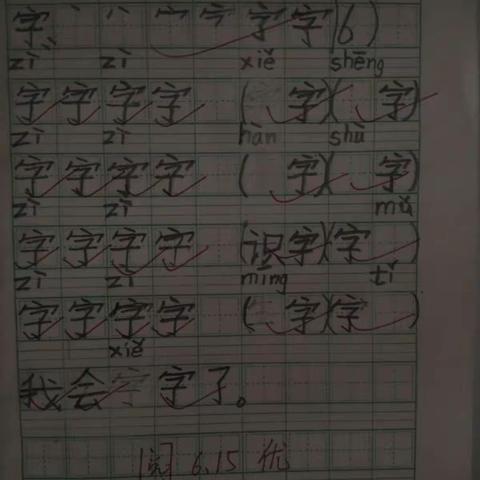 字 字 字 (6)
zì zì xiě shēng
字 字 字 字 ( 字)( 字)
zì zì hàn shù
字 字 字 字 ( 字)( 字)
zì zì mǔ
字 字 字 字 (识字)(字 )
zì zì míng tǐ
字 字 字 字 ( 字)(字 )
xiě
我会 字了。
阅 6.15 优